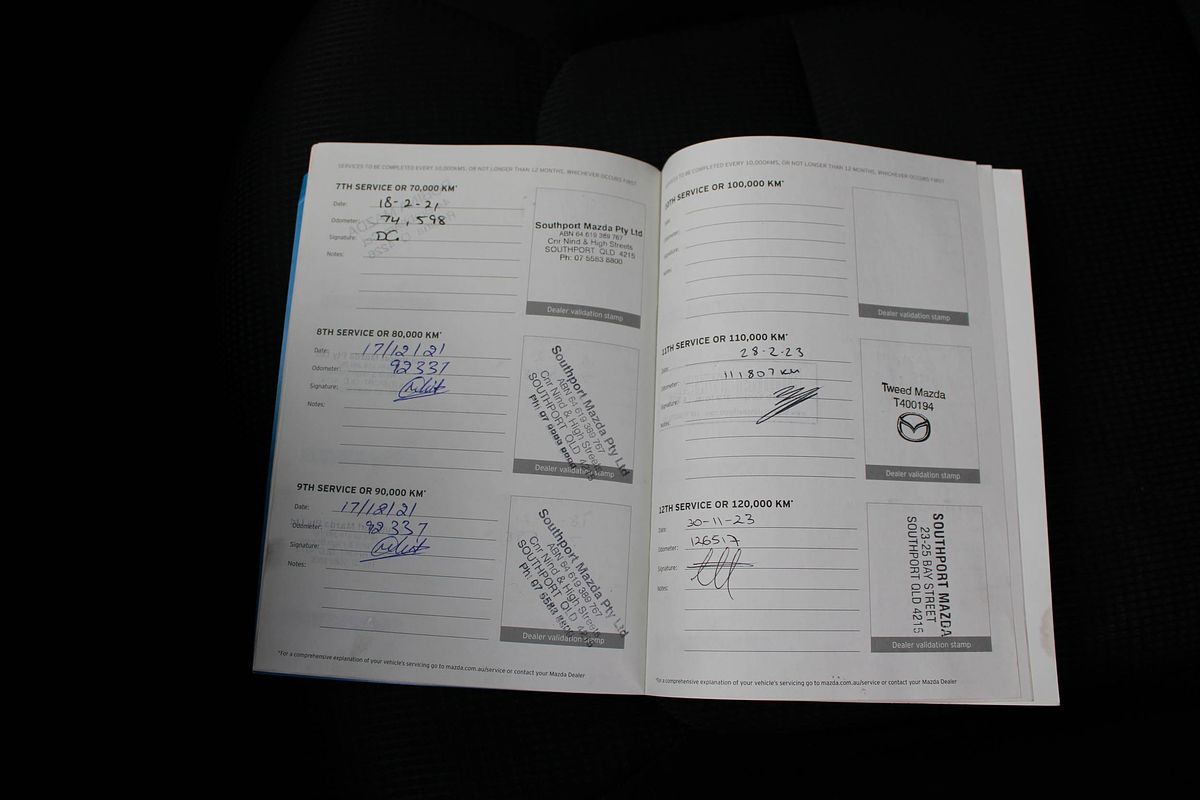 SERVICES TO BE COMPLETED EVERY 10,000KMS, OR NOT LONGER THAN 12 MONTHS, WHICHEVER OCCURS FIRST
7TH SERVICE OR 70,000 KM*
Date: 18-2-21
Odometer: 74,598
Signature: DC
Notes:
Southport Mazda Pty Ltd
ABN 64 619 389 767
Cnr Nind & High Streets
SOUTHPORT QLD 4215
Ph: 07 5583 8800
Dealer validation stamp
8TH SERVICE OR 80,000 KM*
Date: 17/12/21
Odometer: 92337
Signature:
Notes:
Southport Mazda Pty Ltd
ABN 64 619 389 767
Cnr Nind & High Streets
SOUTHPORT QLD 4215
Dealer validation stamp
9TH SERVICE OR 90,000 KM*
Date: 17/12/21
Odometer: 92337
Signature:
Notes:
Southport Mazda Pty Ltd
ABN 64 619 389 767
Cnr Nind & High Streets
SOUTHPORT QLD 4215
Ph: 07 5583 8800
Dealer validation stamp
*For a comprehensive explanation of your vehicle's servicing go to mazda.com.au/service or contact your Mazda Dealer
SERVICES TO BE COMPLETED EVERY 10,000KMS, OR NOT LONGER THAN 12 MONTHS, WHICHEVER OCCURS FIRST
10TH SERVICE OR 100,000 KM*
Date:
Odometer:
Signature:
Notes:
Dealer validation stamp
11TH SERVICE OR 110,000 KM*
Date: 28-2-23
Odometer: 111807 KM
Signature:
Notes:
Tweed Mazda
T400194
Dealer validation stamp
12TH SERVICE OR 120,000 KM*
Date: 30-11-23
Odometer: 126517
Signature:
Notes:
SOUTHPORT MAZDA
23-25 BAY STREET
SOUTHPORT QLD 4215
Dealer validation stamp
*For a comprehensive explanation of your vehicle's servicing go to mazda.com.au/service or contact your Mazda Dealer